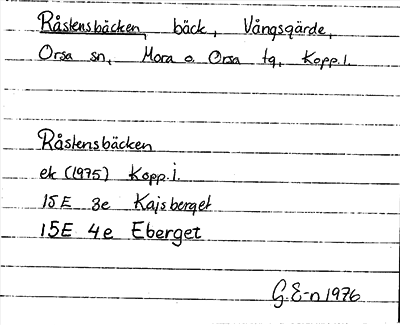 Råstensbäcken, bäck, Vångsgärde,
Orsa sn, Mora o. Orsa tg, Kopp. l.
Råstensbäcken
ek (1975) Kopp. l.
15E 3e Kajsberget
15E 4e Eberget
G. E-n 1976